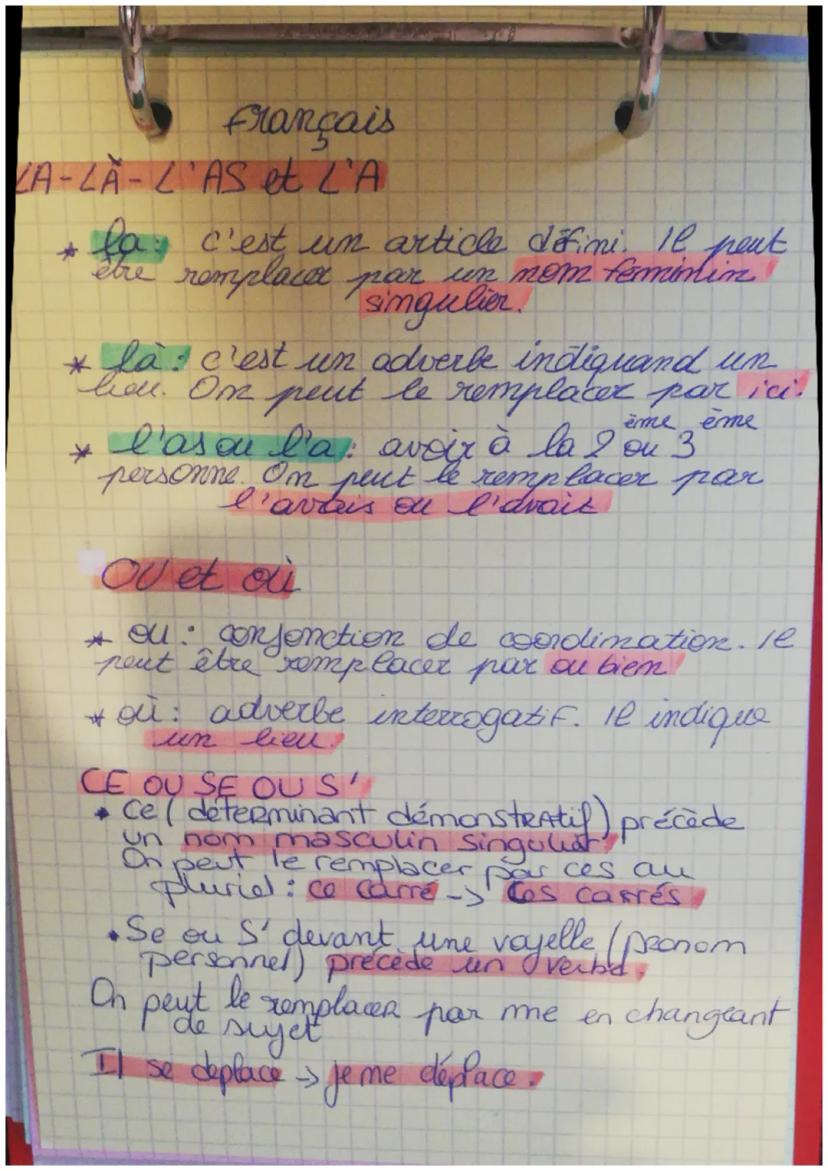 Français
LA - LÀ - L'AS et L'A
* la : c'est un article défini. Il peut
être remplacer par un nom féminin
singulier.
* là : c'est un adverbe indiquand un
lieu. On peut le remplacer par ici.
* l'as ou l'a : avoir à la 2ème ou 3ème
personne. On peut le remplacer par
l'avais ou l'avait
OU et où
* ou : conjonction de coordination. Il
peut être remplacer par ou bien
* où : adverbe interrogatif. Il indique
un lieu.
CE OU SE OU S'
• Ce (déterminant démonstratif) précède
un nom masculin singulier.
On peut le remplacer par ces au
pluriel : ce carré -> Ces carrés
• Se ou S' devant une voyelle (pronom
personnel) précède un verbe.
On peut le remplacer par me en changeant
de sujet
Il se deplace -> je me déplace.